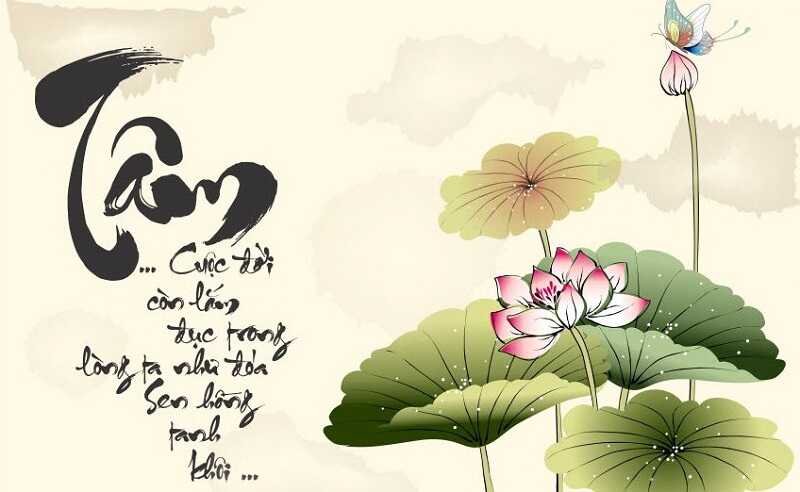 Tâm
... Cuộc đời
còn lắm
đục trong
lòng ta như đóa
Sen hồng
tanh
khôi ...